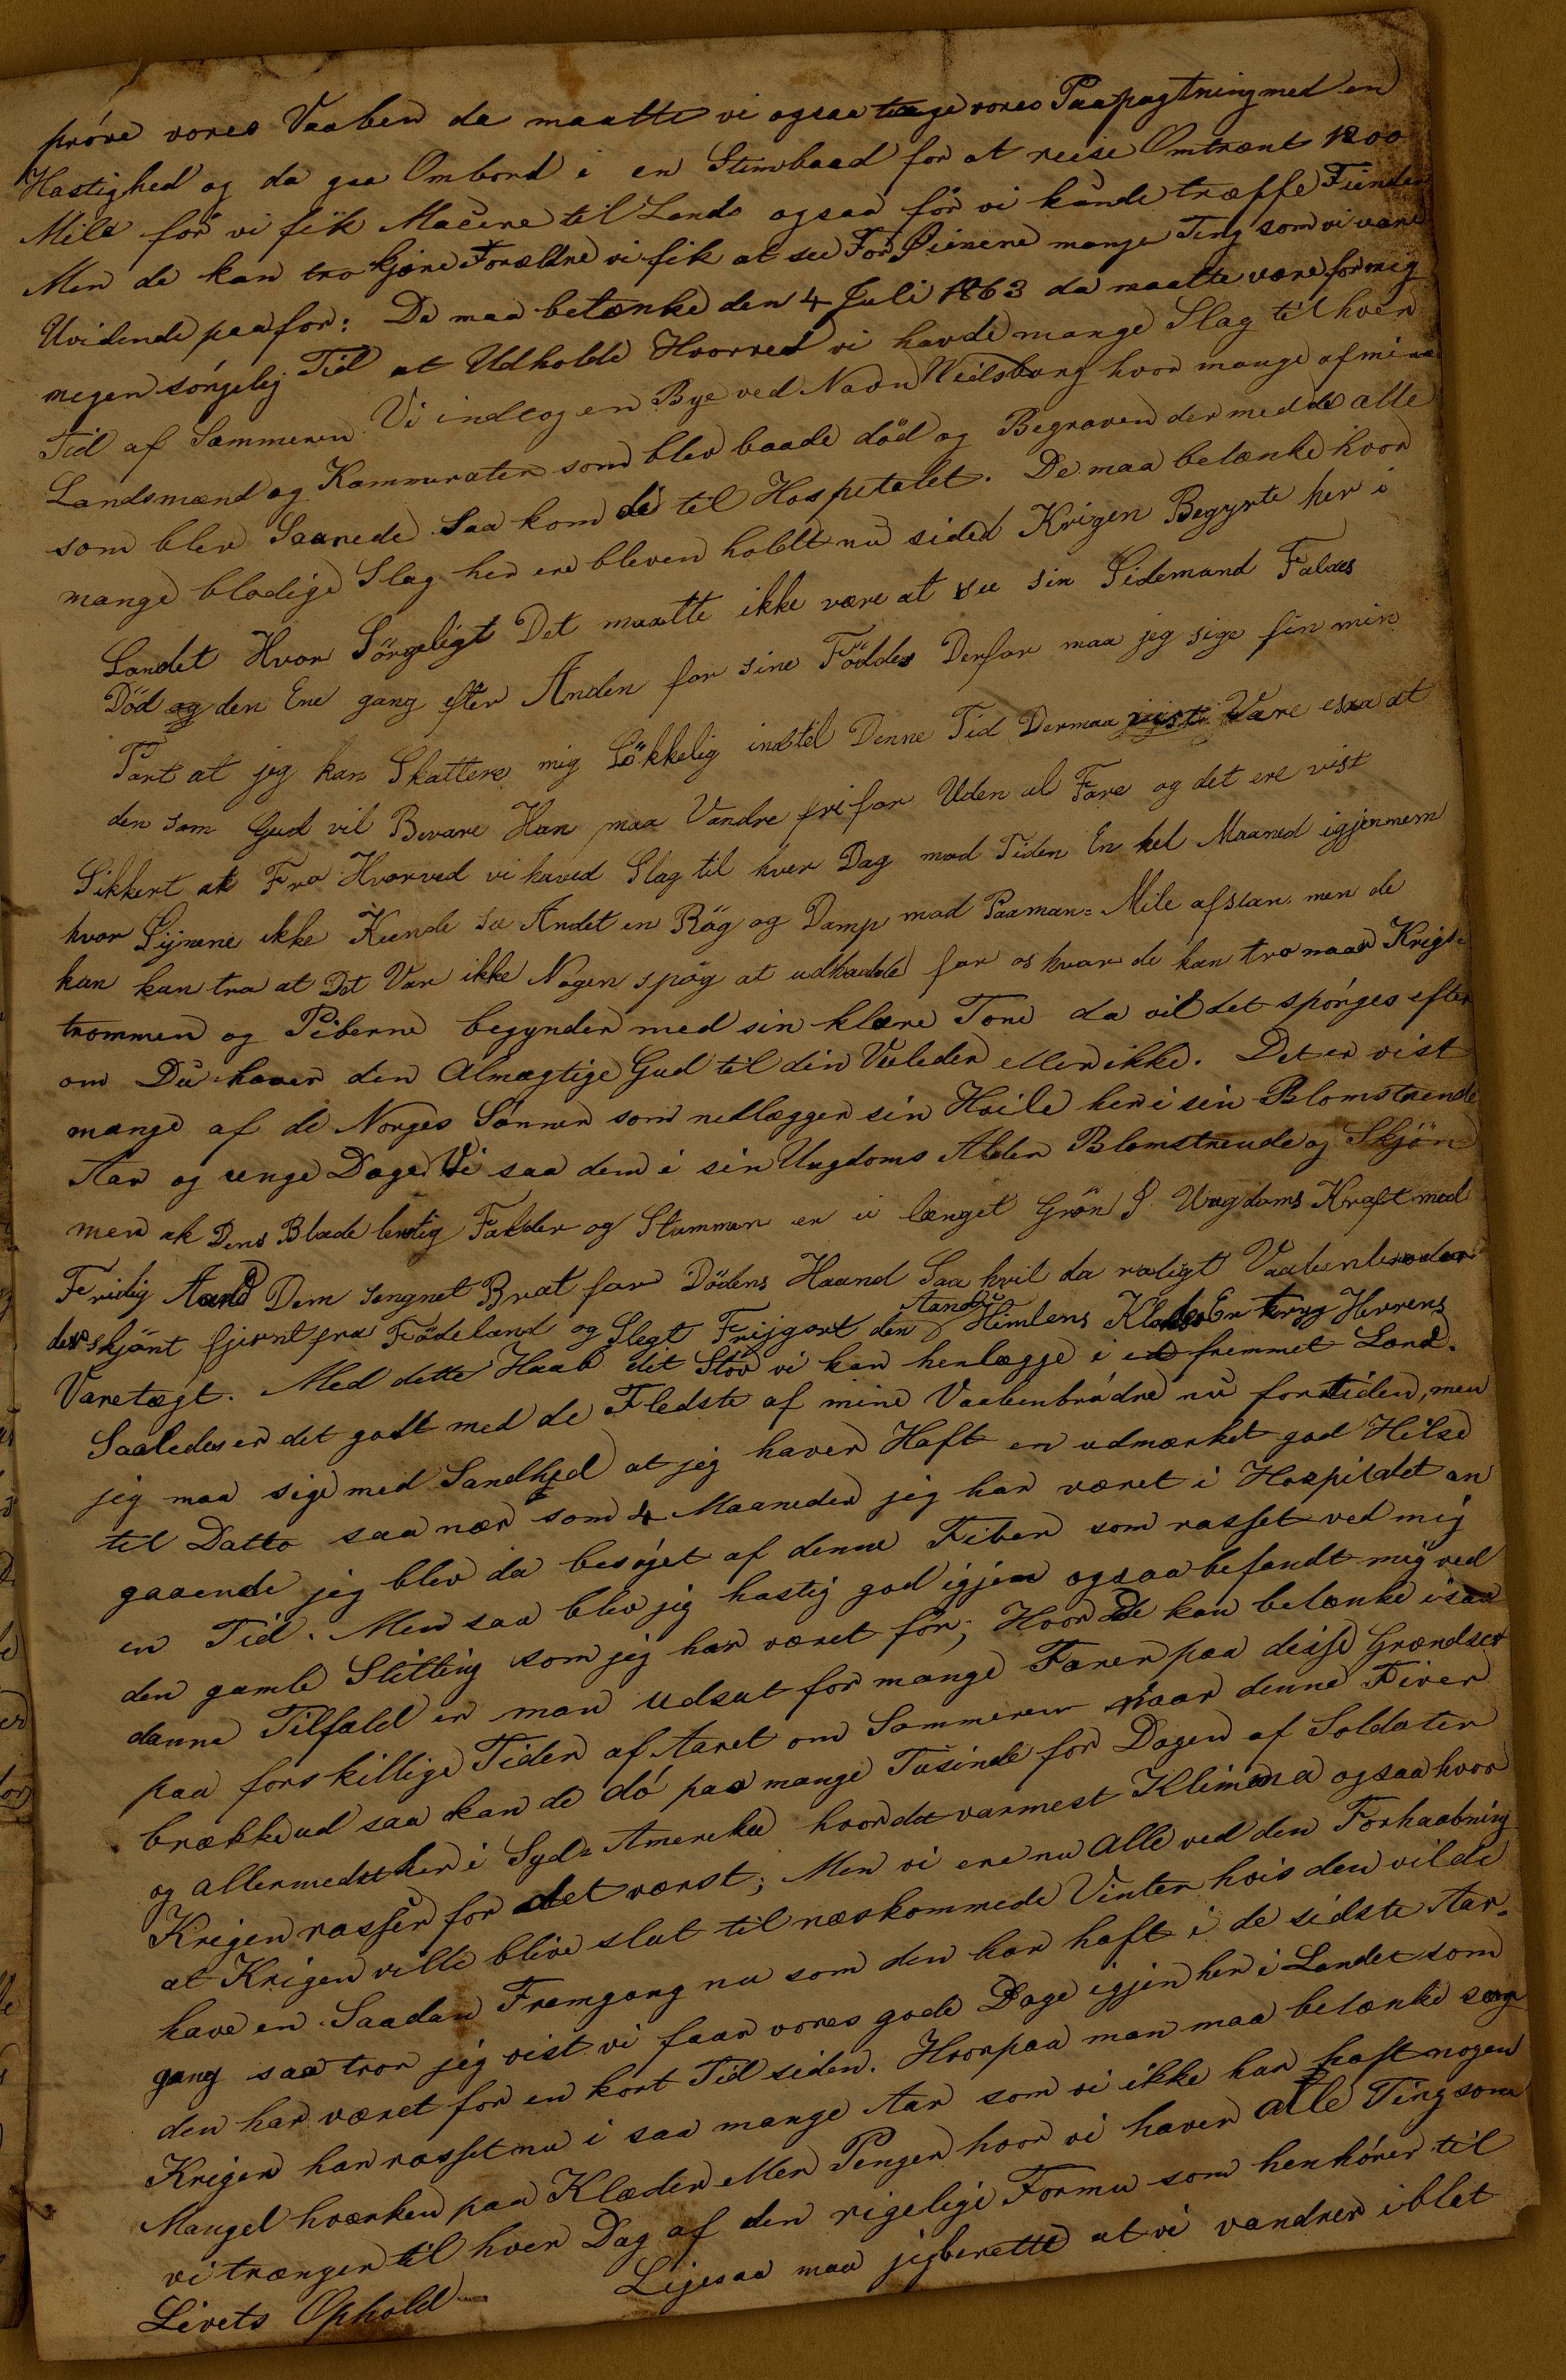 pröve vores Vaaben da maatte vi ogsaa tage vores Paapagtning med en
Hastighed og da gaa Ombord i en Stimbaad for at reise Omtrent 1200
Mile för vi fik Macere til Lands ogsaa för vi kunde træffe Fiender
Men de kan tro kjære Forældre vi fik at see For Öienene mange Ting som vi vare
Uvidende paa for: De maa betænke den 4 Juli 1863 da maatte være for mig
megen sörgelig Tid at Udholde Hvorved vi havde mange Slag til hver
Tid af Sammeren Vi indtog en Bye ved Navn Weilsborg hvor mange af mine
Landsmænd og Kammerater som blev baade död og Begraven der med de alle
som blev Saarede Saa kom de til Hospetalet. De maa betænke hvor
mange blodige Slag her ere bleven holdt nu siden Krigen Begynte her i
Landet Hvor Sörgeligt Det maatte ikke være at see sin Sidemand Faldes
Död og den Ene gang efter Anden for sine Födder Derfor maa jeg sige for min
Part at jeg kan Skattere mig Lökkelig indtil Denne Tid Dermaa Være esaa at
den som Gud vil Bevare Han maa Vandre fri for Uden al Fare og det ere vist
Sikkert at Fra Hvorved vi haved Slag til hver Dag mod Tiden En hel Maaned igjennem
hvor Öjnene ikke Kunde se Andet en Rög og Damp mod Paaman= Mile afstan men de
kan kan tro at Det Var ikke Nogen spög at udholde for os hvor de kan tro naar Krigs=
trommen og Piberne begynder med sin klare Tone da vil det spörges efter
om Du haver den Almægtige Gud til din Veileder eller ikke. Det er vist
mange af de Norges Sönner som nedlægger sin Hvile her i sin Blomstrende
Aar og unge Dage. Vi saa dem i sin Ungdoms Alder Blomstrende og Skjön
men ak Dens Blade hastig Falder og Stammen er ei længet Grön I Ungdoms Kraft med
Fridig Aand Dem segnet Brat for Dödens Haand Saa hvil da roligt Vaabenbroder
der skjönt fjernt fra Födeland og Slegt Frijgort den Aand i Himlens Klarhed Er tryg Herrens
Varetægt. Med dette Haab dit Stöv vi kan henlægge i et fremmet Land.
Saaledes er det godt med de Fledste af mine Vaabenbrödre nu for tiden, men
jeg maa sige med Sandhed at jeg haver Haft en udmærket god Helse
til Datto saa nær som 4 Maaneder jeg har været i Hospitalet an
gaaende jeg blev da besöget af denne Fiber som rasset ved mig
en Tid. Men saa blev jeg hastig god igjen ogsaa befandt mig ved
den gamle Stilling som jeg har været för; Hvor De kan betænke i saa
danne Tilfald er man udsat for mange Farer paa disse Grændser
paa forskillige Tider af Aaret om Sammeren naar denne Fiver
brække ud saa kan de dö paa mange Tusinde for Dagen af Soldater
og allermedst her i Syd= Amereka hvor det varmest Klimma ogsaa hvor
Krigen rasser for det værst; Men vi ere nu alle ved den Forhaabning
at Krigen ville blive slut til næskommede Vinter hvis den vilde
have en Saadan Fremgang nu som den har haft i de sidste Aar=
gang saa tror jeg vist vi faar vores gode Dage igjen her i Landet som
den har været for en kort Tid siden. Hvorpaa man maa betænke
Krigen har rasset nu i saa mange Aar som vi ikke har haft nogen
Mangel hværken paa Klæder eller Penger hvor vi haver alle Ting som
vi trænger til hver Dag af den rigelige Formu som henhörer til
Livets Ophold Ligesaa maa jeg berette at vi vandrer iblet